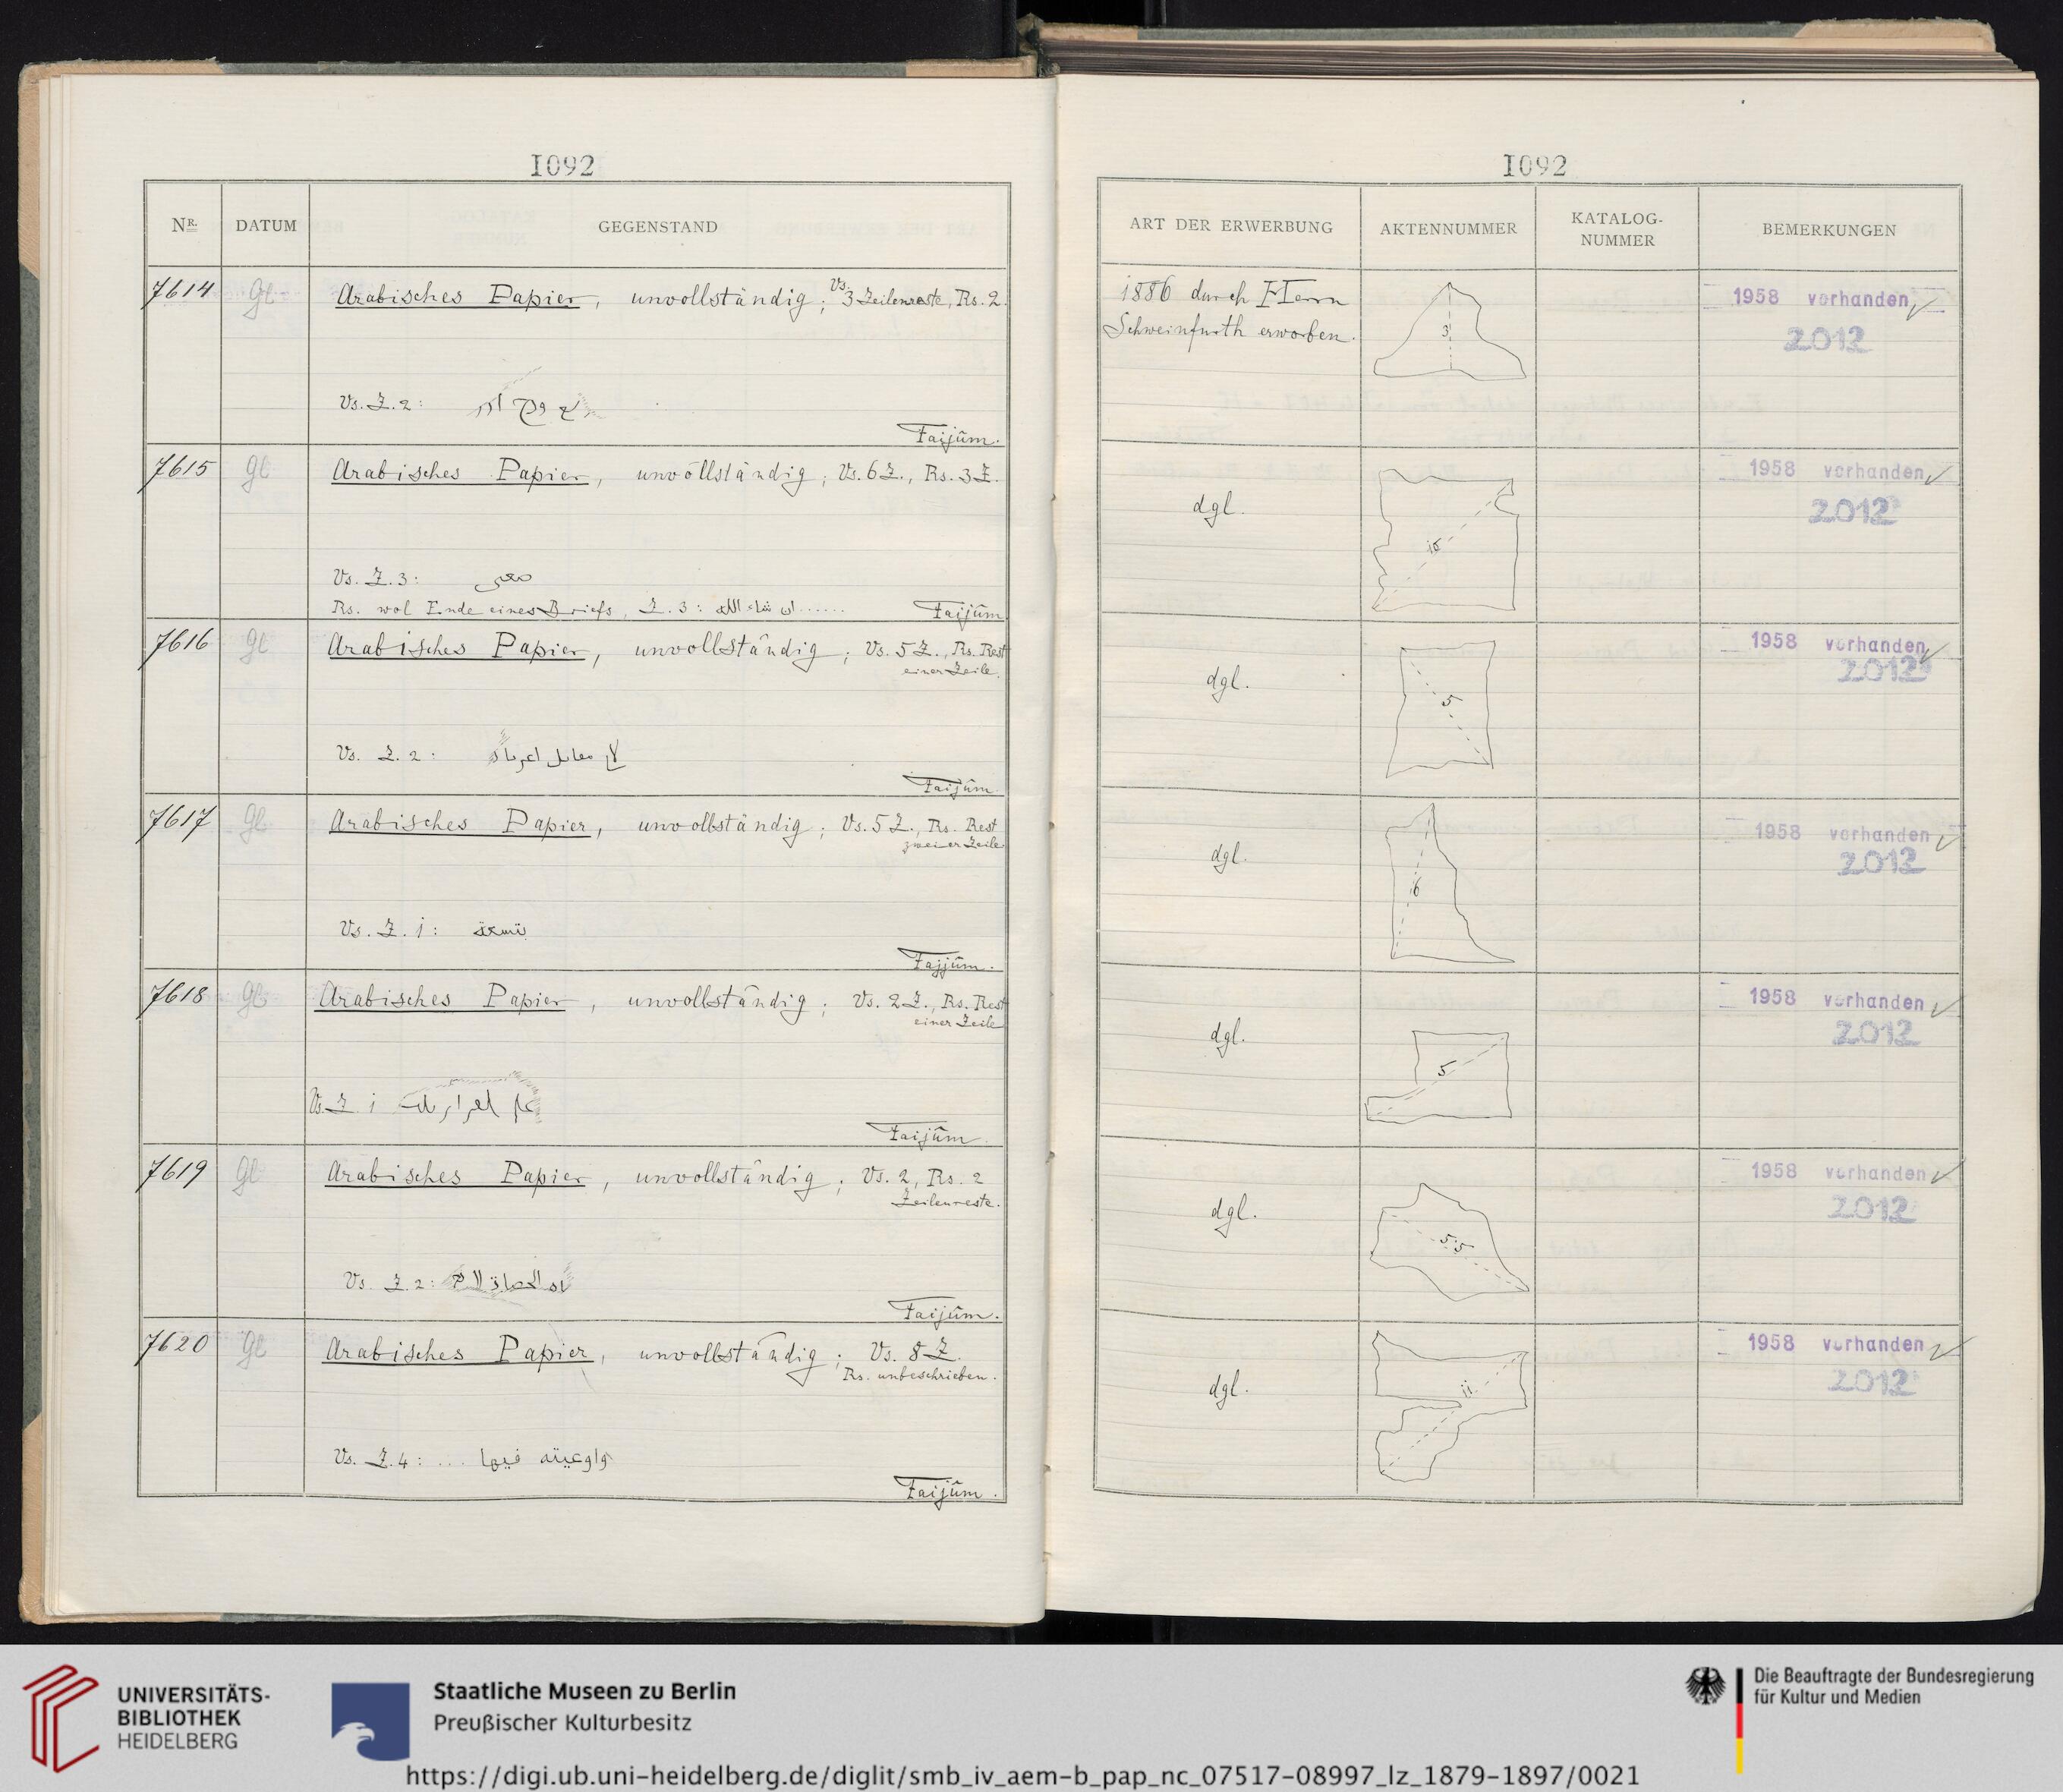 1092
NR. DATUM GEGENSTAND
7614 Gl Arabisches Papier, unvollständig; Vs. 3 Zeilenreste, Rs. 2.
Vs. Z. 2:
Faijûm.
7615 Gl Arabisches Papier, unvollständig; Vs. 6 Z., Rs. 3 Z.
Vs. Z. 3:
Rs. wol Ende eines Briefs, Z. 3: ان شاء الله ......
Faijûm
7616 Gl Arabisches Papier, unvollständig; Vs. 5 Z., Rs. Rest
einer Zeile.
Vs. Z. 2:
Faijûm
7617 Gl Arabisches Papier, unvollständig; Vs. 5 Z., Rs. Rest
zweier Zeile
Vs. Z. 1:
Faijûm.
7618 Gl Arabisches Papier, unvollständig; Vs. 2 Z., Rs. Rest
einer Zeile
Vs. Z. 1
Faijûm
7619 Gl Arabisches Papier, unvollständig; Vs. 2, Rs. 2
Zeilenreste.
Vs. Z. 2:
Faijûm.
7620 Gl Arabisches Papier, unvollständig; Vs. 8 Z.
Rs. unbeschrieben.
Vs. Z. 4: ... فيها
Faijûm.
1092
ART DER ERWERBUNG AKTENNUMMER KATALOG-
NUMMER BEMERKUNGEN
1886 durch Herrn
Schweinfurth erworben.
3
1958 vorhanden
2012
dgl.
15
1958 vorhanden
2012
dgl.
5
1958 vorhanden
2012
dgl.
16
1958 vorhanden
2012
dgl.
5
1958 vorhanden
2012
dgl.
5,5
1958 vorhanden
2012
dgl.
11
1958 vorhanden
2012
UNIVERSITÄTS-
BIBLIOTHEK
HEIDELBERG
Staatliche Museen zu Berlin
Preußischer Kulturbesitz
Die Beauftragte der Bundesregierung
für Kultur und Medien
https://digi.ub.uni-heidelberg.de/diglit/smb_iv_aem-b_pap_nc_07517-08997_lz_1879-1897/0021